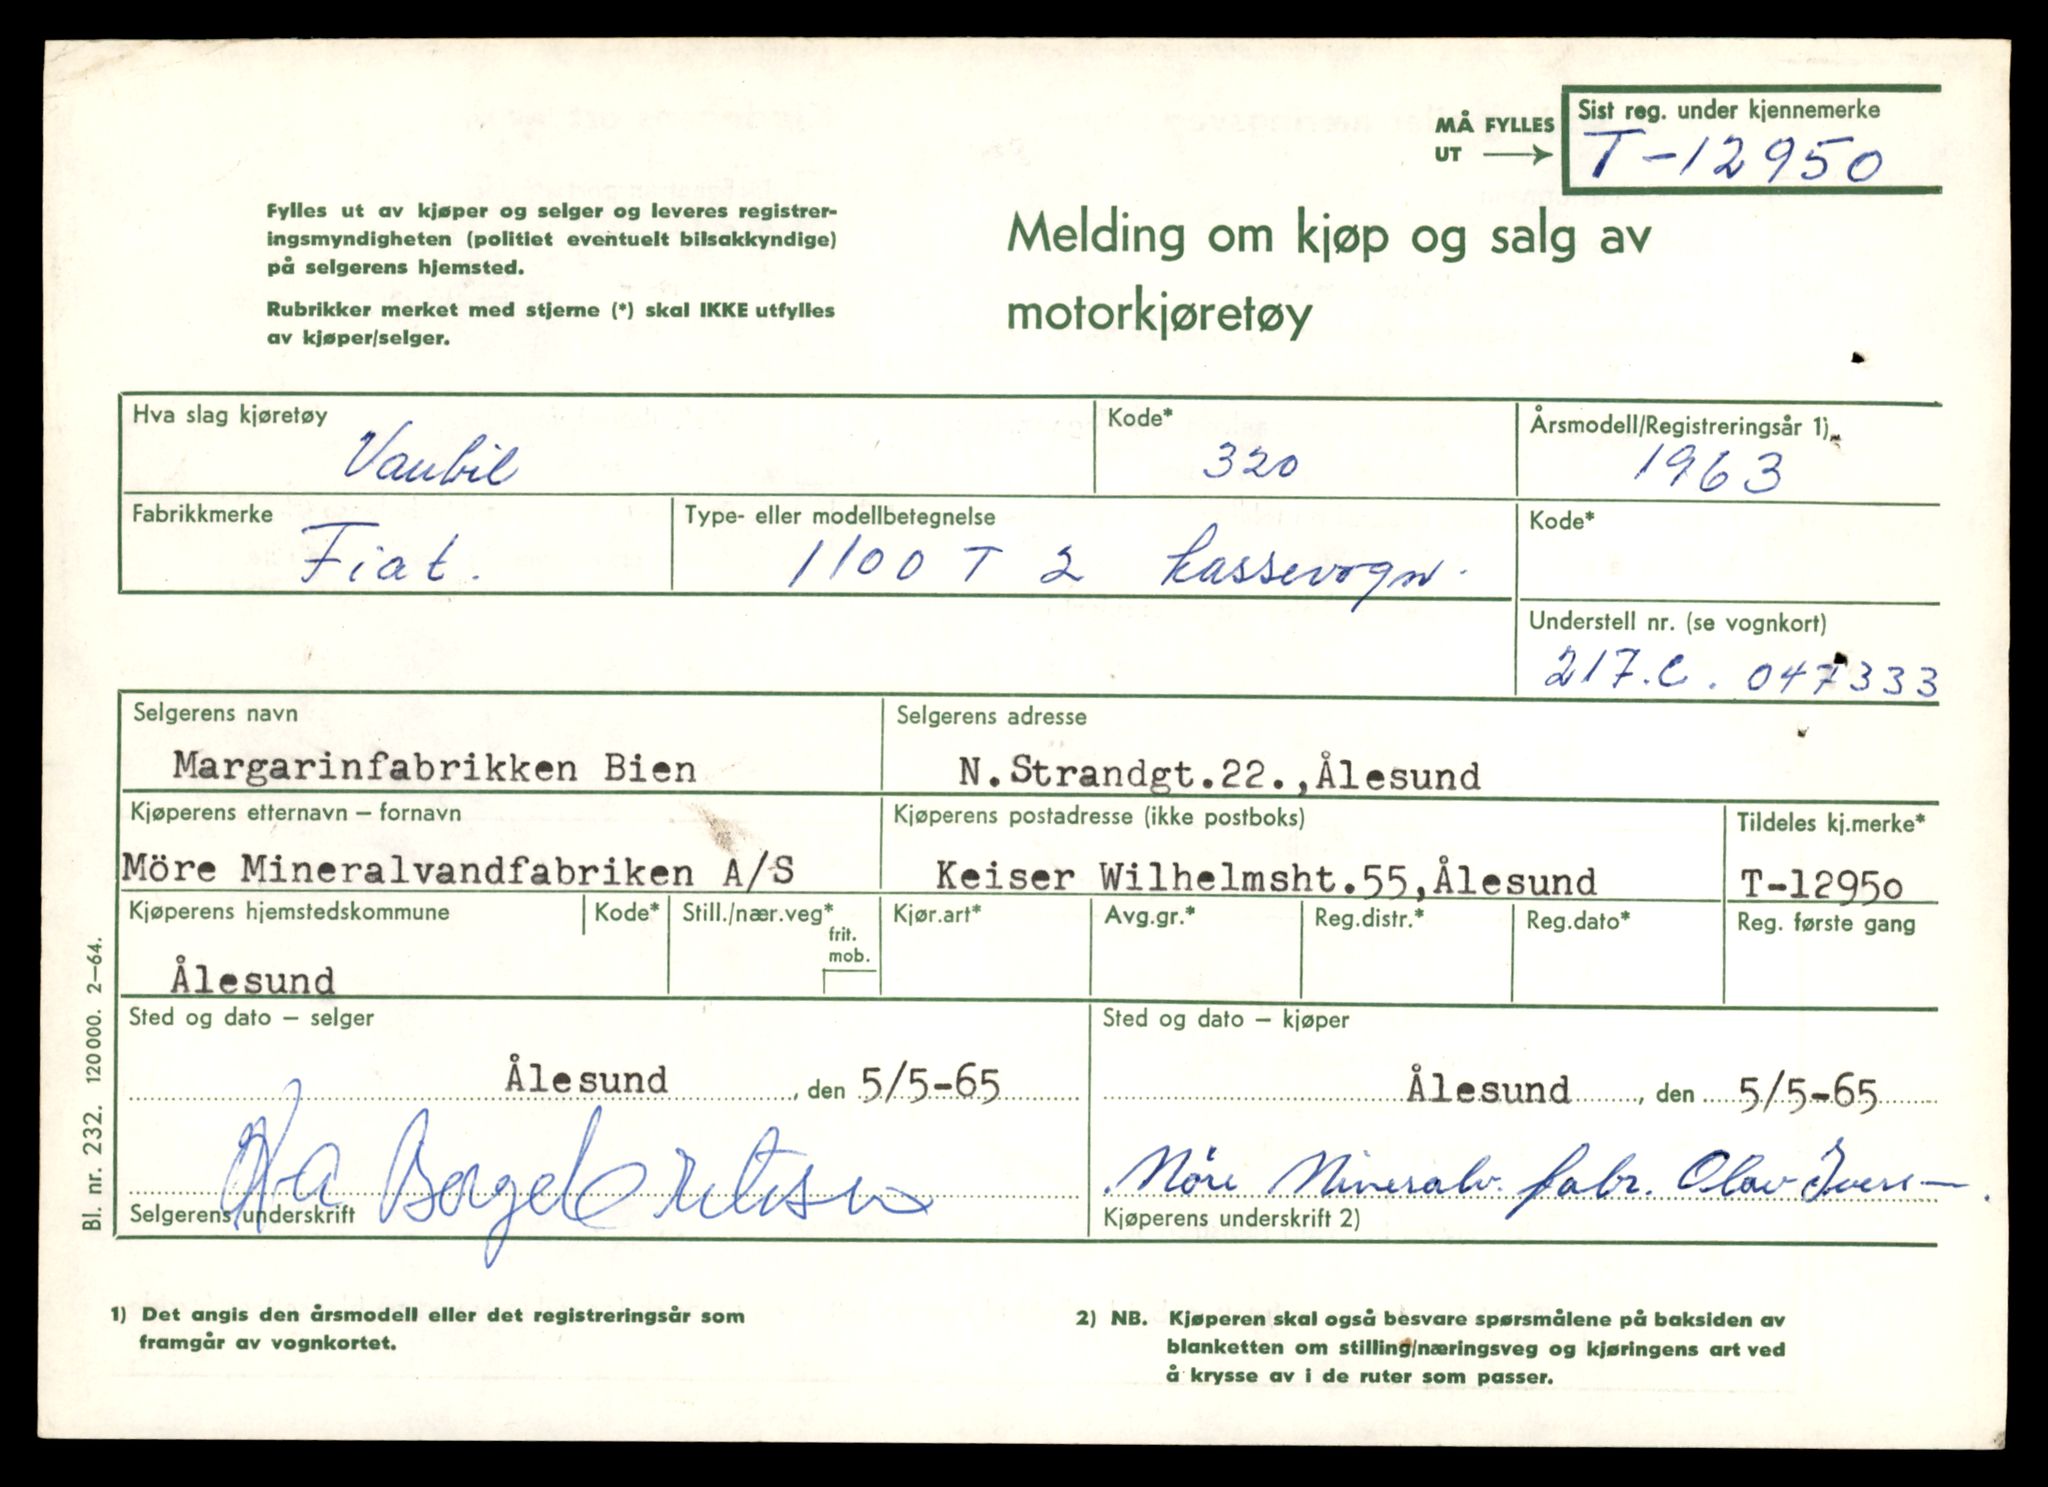 MÅ FYLLES
UT
Sist reg. under kjennemerke
T-12950
Fylles ut av kjøper og selger og leveres registrer-
ingsmyndigheten (politiet eventuelt bilsakkyndige)
på selgerens hjemsted.
Rubrikker merket med stjerne (*) skal IKKE utfylles
av kjøper/selger.
Melding om kjøp og salg av
motorkjøretøy
Hva slag kjøretøy
Kode*
Årsmodell/Registreringsår 1)
Varebil
320
1963
Fabrikkmerke
Type- eller modellbetegnelse
Kode*
Fiat.
1100 T 2 kassevogn.
Understell nr. (se vognkort)
217.C. 047333
Selgerens navn
Selgerens adresse
Margarinfabrikken Bien
N.Strandgt.22.,Ålesund
Kjøperens etternavn – fornavn
Kjøperens postadresse (ikke postboks)
Tildeles kj.merke*
Möre Mineralvandfabriken A/S
Keiser Wilhelmsht.55,Ålesund
T-12950
Kjøperens hjemstedskommune
Kode*
Still./nær.veg*
frit.
mob.
Kjør.art*
Avg.gr.*
Reg.distr.*
Reg.dato*
Reg. første gang
Ålesund
Sted og dato – selger
Sted og dato – kjøper
Ålesund, den 5/5-65
Ålesund, den 5/5-65
Møre Mineralv. fabr. Olav Iversen
Selgerens underskrift
Kjøperens underskrift 2)
Bl. nr. 232. 120000. 2–64.
1) Det angis den årsmodell eller det registreringsår som
framgår av vognkortet.
2) NB. Kjøperen skal også besvare spørsmålene på baksiden av
blanketten om stilling/næringsveg og kjøringens art ved
å krysse av i de ruter som passer.